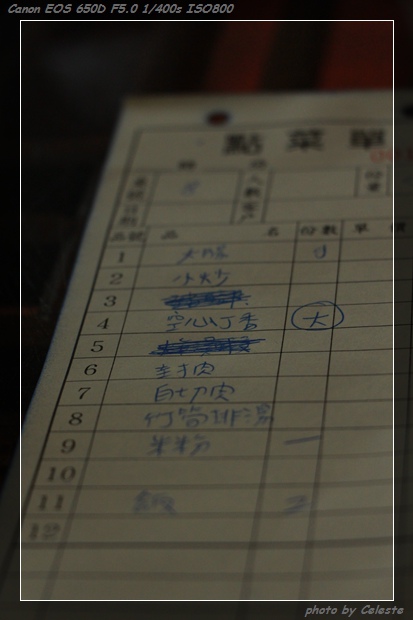 Canon EOS 650D F5.0 1/400s ISO800
點菜單
桌號 8 人數
日期 客戶
品號 品名 份數 單價
1 大腸
2 小炒
3
4 空心丁香 大
5
6 封肉
7 白切肉
8 竹筒排湯
9 米粉 一
10
11 飯
12
photo by Celeste